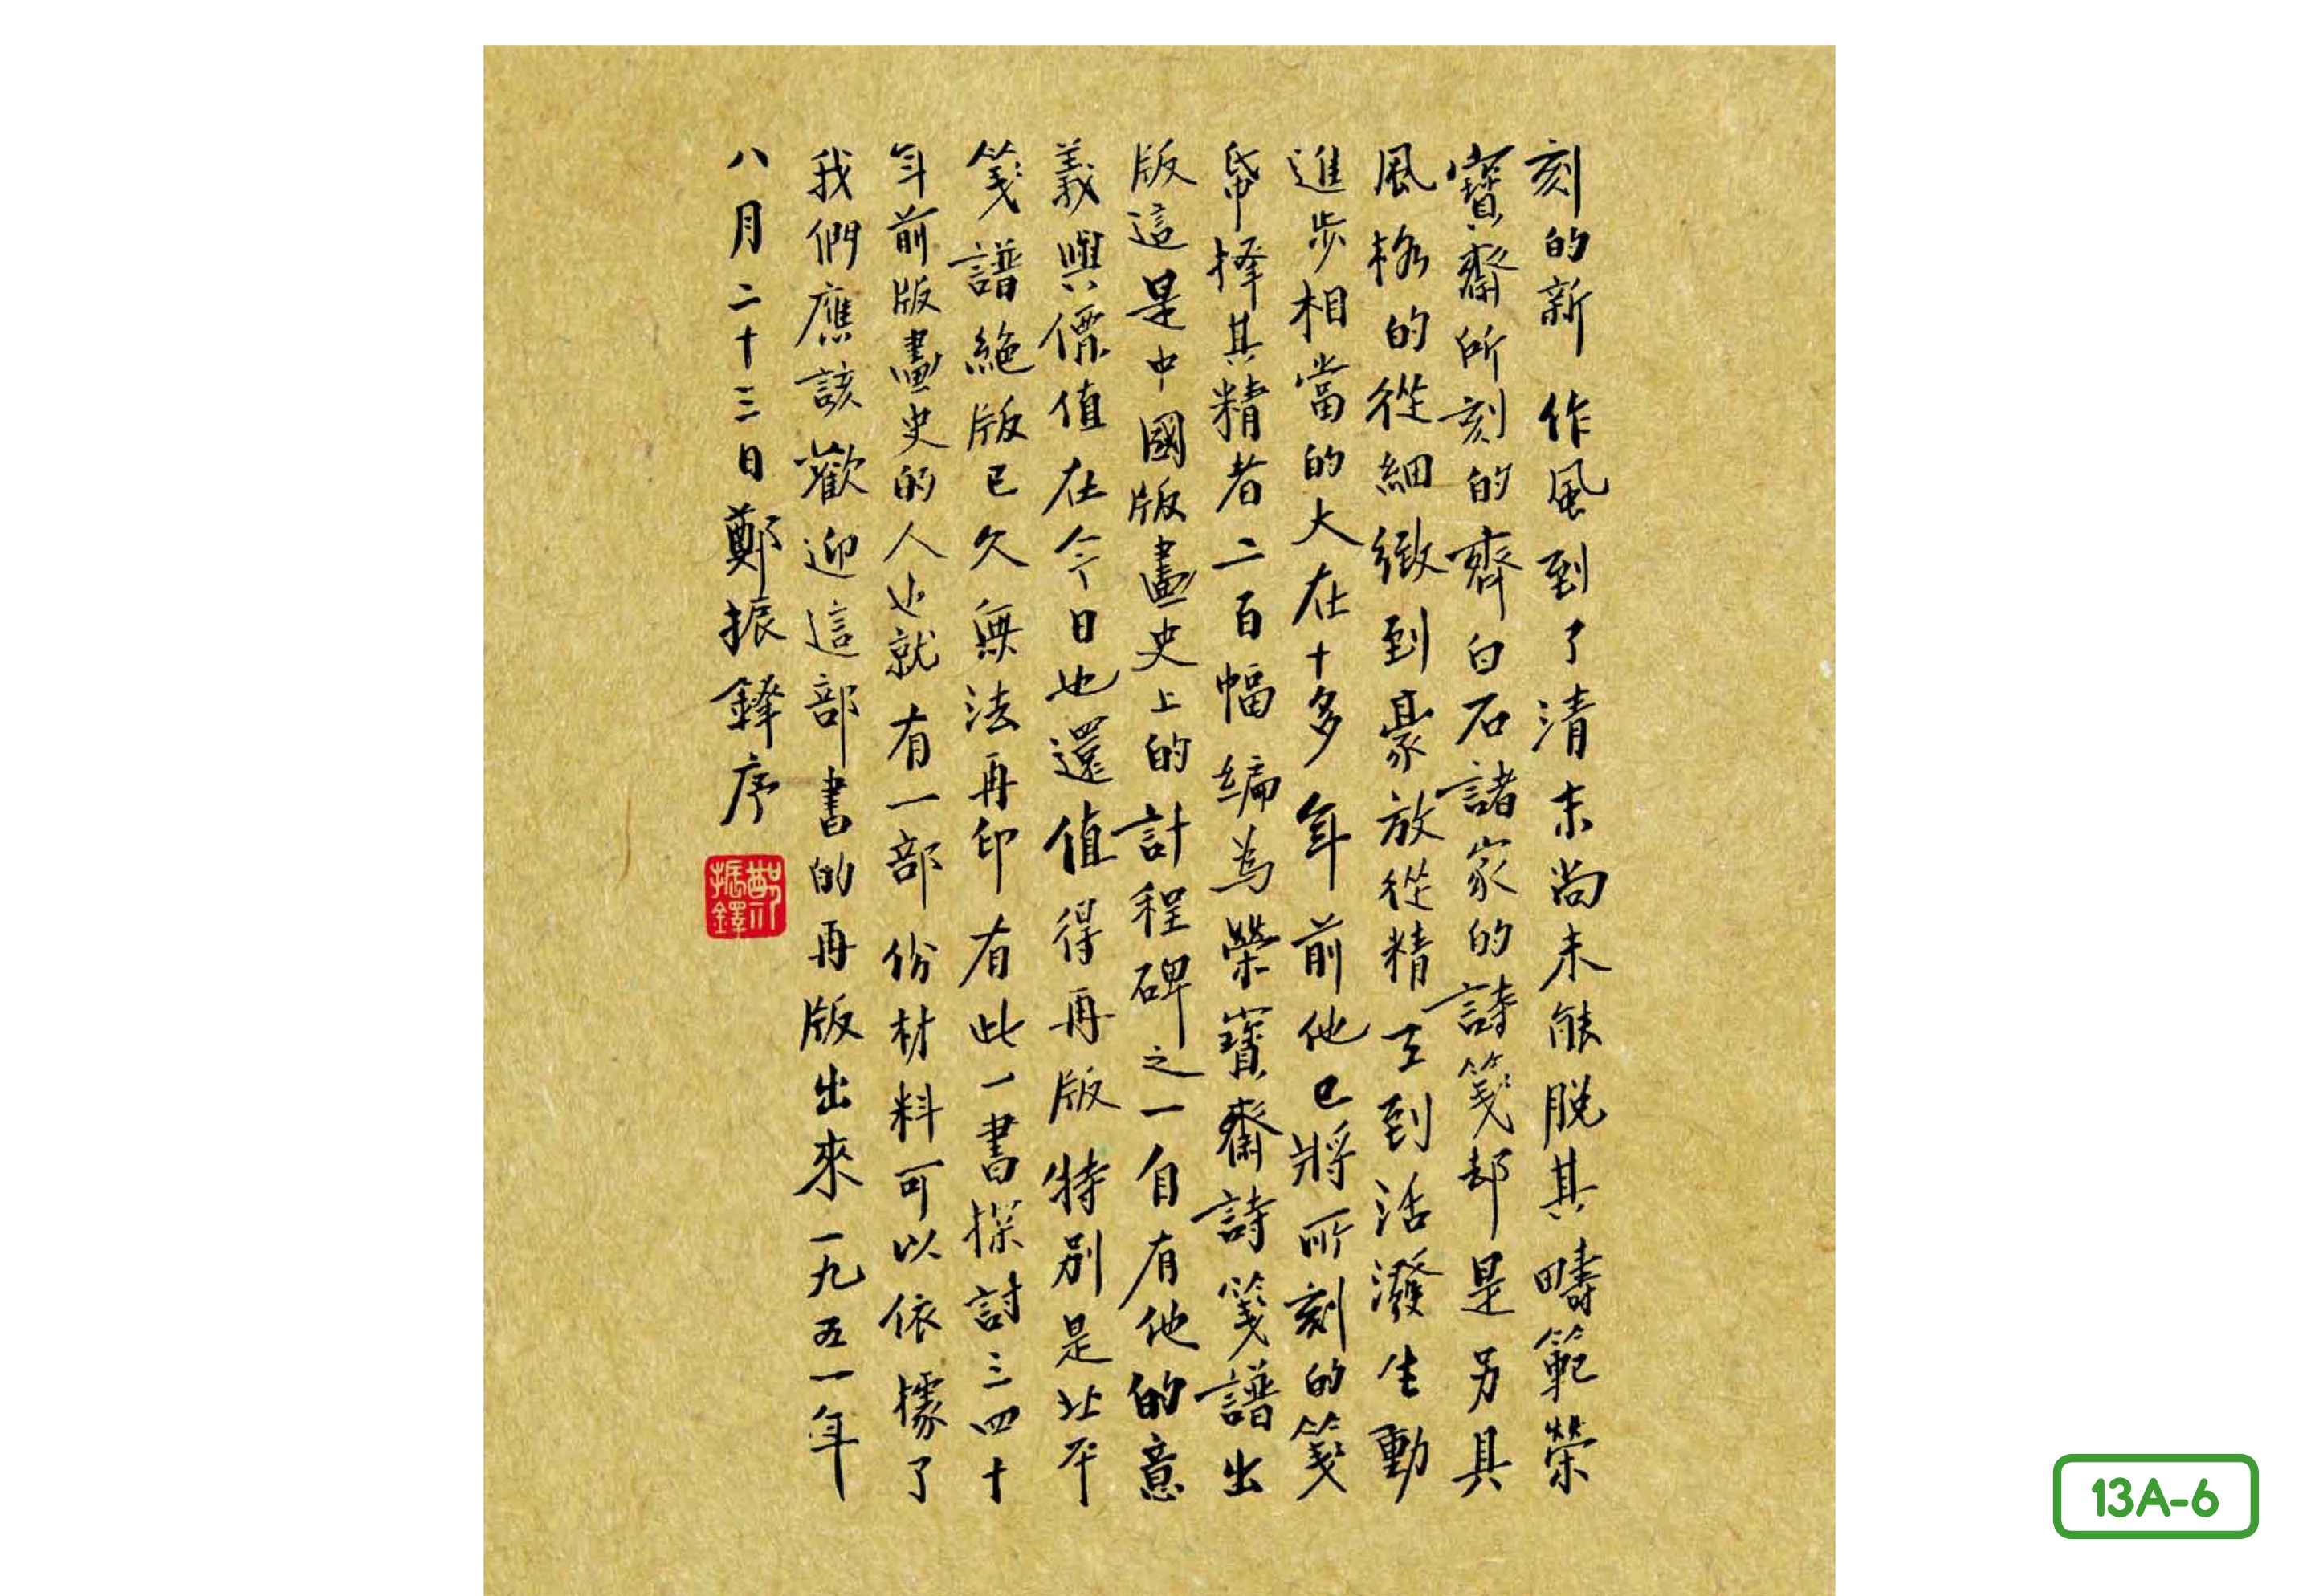 刻的新作風到了清末尚未能脫其疇範榮
寶齋所刻的齊白石諸家的詩箋却是另具
風格的從細緻到豪放從精工到活潑生動
進步相當的大在十多年前他已將所刻的箋
帋擇其精者二百幅編為榮寶齋詩箋譜出
版這是中國版畫史上的計程碑之一自有他的意
義與價值在今日也還值得再版特別是北平
箋譜絕版已久無法再印有此一書探討三四十
年前版畫史的人也就有一部份材料可以依據了
我們應該歡迎這部書的再版出來一九五一年
八月二十三日鄭振鐸序
鄭振鐸
13A-6